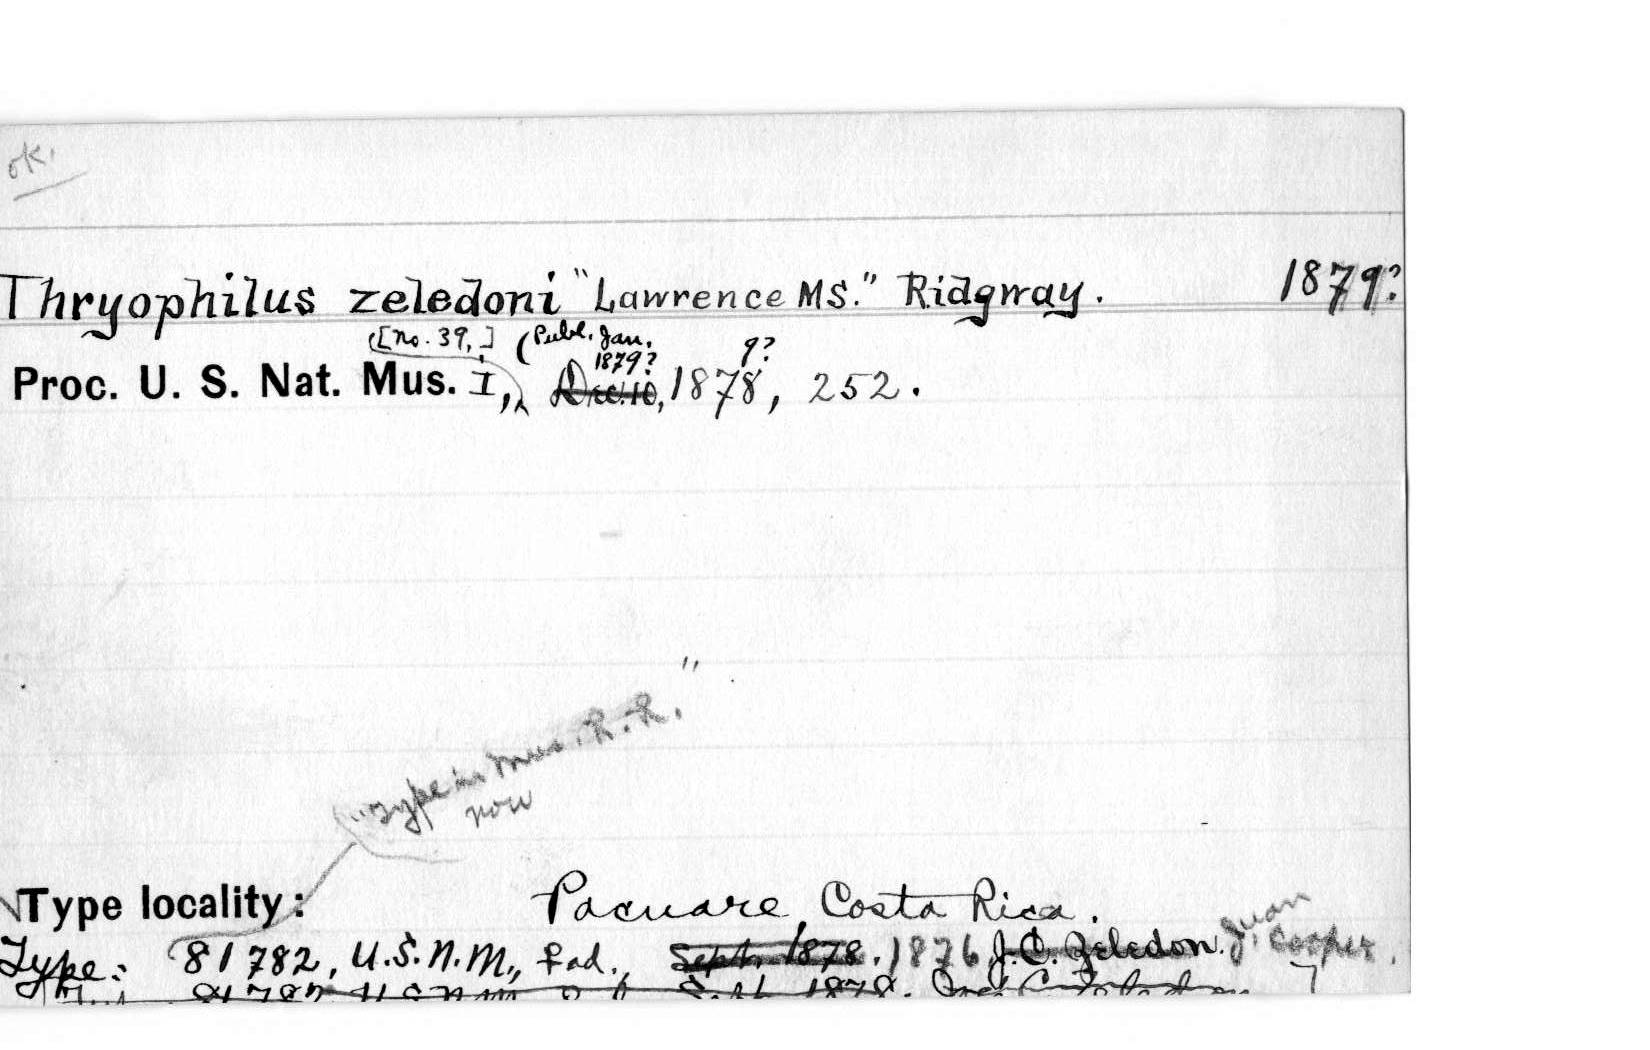 ok.
Thryophilus zeledoni "Lawrence MS." Ridgway. 1879?
[no. 39,] (Publ. Jan. 1879? 9?
Proc. U. S. Nat. Mus. I, Dec. 10, 1878, 252.
"Type in Mus. R. R."
now
Type locality: Pacuare, Costa Rica.
Juan
Type: 81782, U.S.N.M., ad., Sept. 1878. 1876 J. C. Zeledon. J. Cooper.
81782 U S N M Sept. 1878.